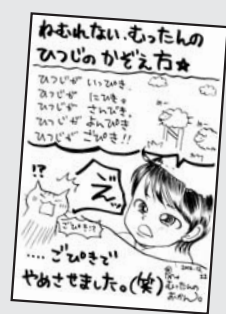 ねむれない、むったんの
ひつじの かぞえ方☆
ひつじが いっぴき、
ひつじが にひき。
ひつじが さんびき。
ひつじが よんひき
ひつじが ごひき!!
ぞ
!?
‥‥ごひきで
やめさせました。(笑)
むったんの